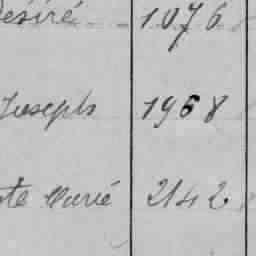 Désiré 1076
Joseph 1968
te Marié 2142